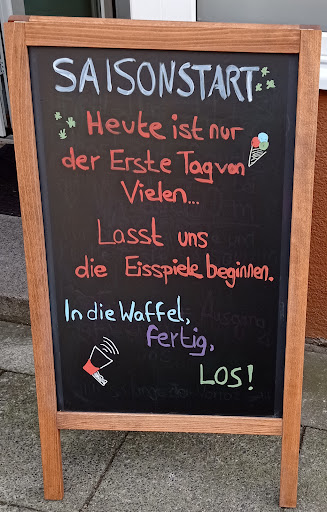 SAISONSTART
Heute ist nur
der Erste Tag von
Vielen...
Lasst uns
die Eisspiele beginnen.
In die Waffel,
fertig,
LOS!